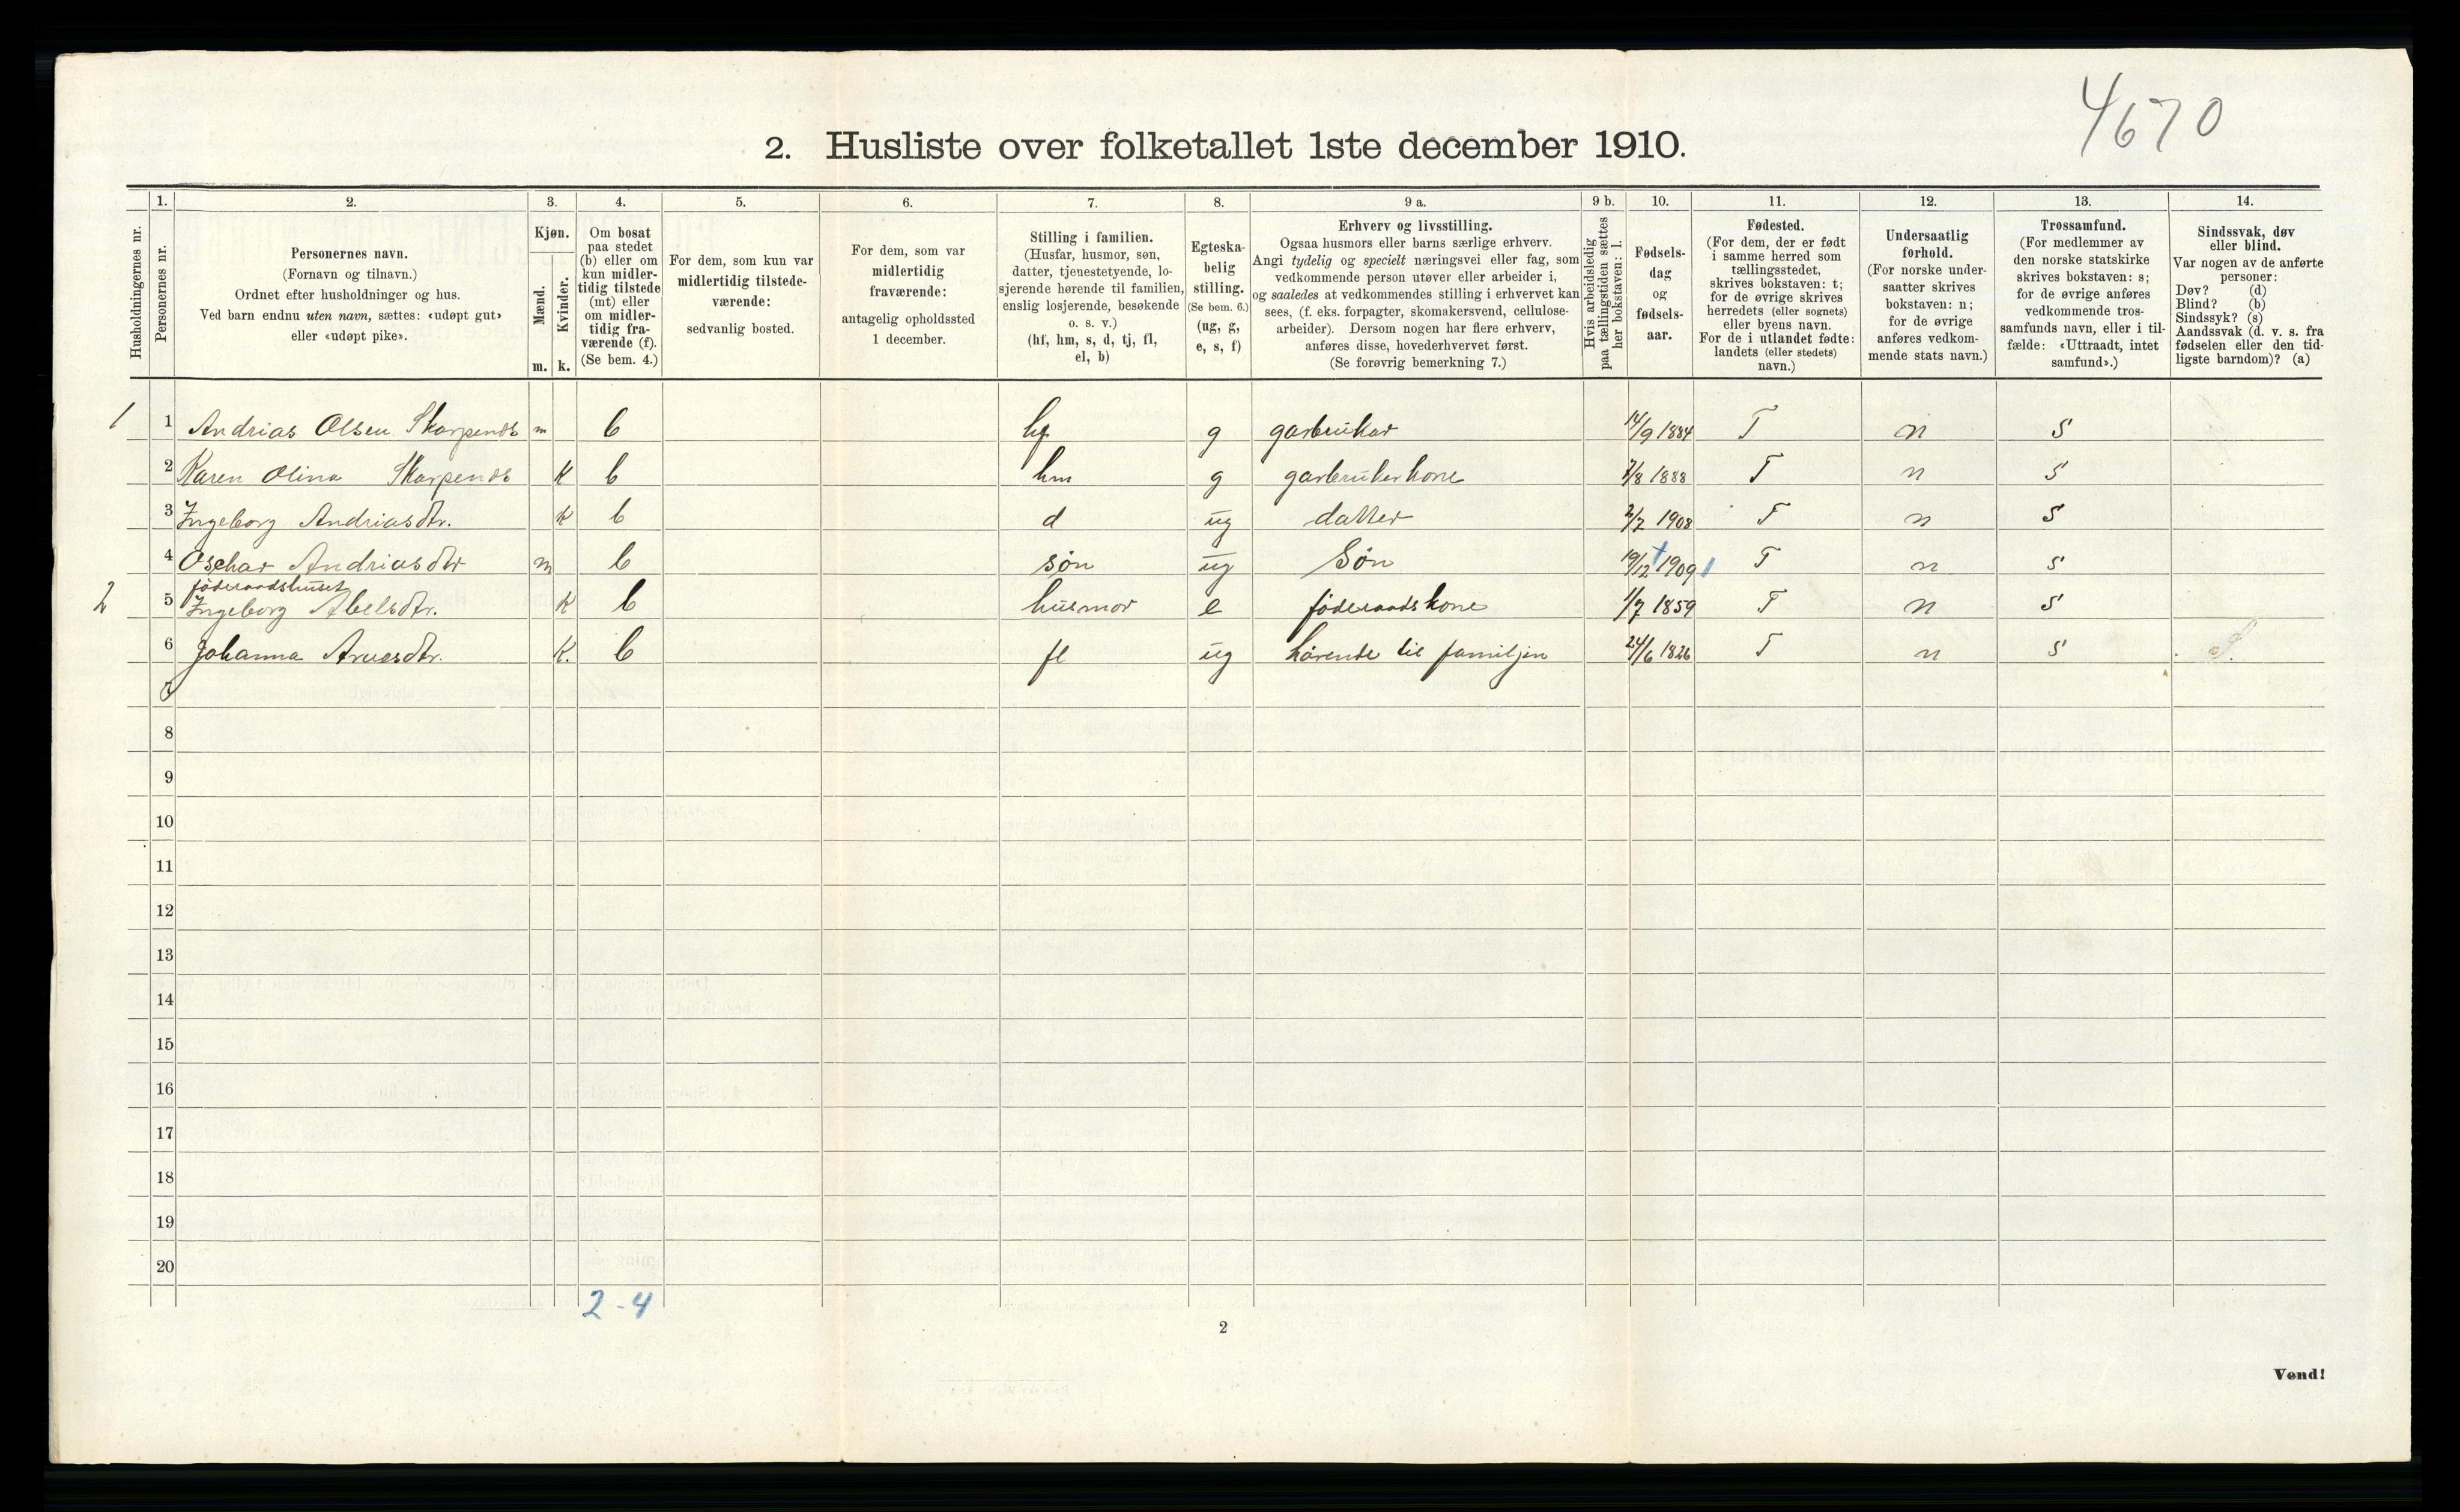 4670
2. Husliste over folketallet 1ste december 1910.
Husholdningernes nr.
1.
Personernes nr.
2.
Personernes navn.
(Fornavn og tilnavn.)
Ordnet efter husholdninger og hus.
Ved barn endnu uten navn, sættes: «udøpt gut»
eller «udøpt pike».
3.
Kjøn.
Mænd.
Kvinder.
m. k.
4.
Om bosat
paa stedet
(b) eller om
kun midler-
tidig tilstede
(mt) eller
om midler-
tidig fra-
værende (f).
(Se bem. 4.)
5.
For dem, som kun var
midlertidig tilstede-
værende:
sedvanlig bosted.
6.
For dem, som var
midlertidig
fraværende:
antagelig opholdssted
1 december.
7.
Stilling i familien.
(Husfar, husmor, søn,
datter, tjenestetyende, lo-
sjerende hørende til familien,
enslig losjerende, besøkende
o. s. v.)
(hf, hm, s, d, tj, fl,
el, b)
8.
Egteska-
belig
stilling.
(Se bem. 6.)
(ug, g,
e, s, f)
9 a.
Erhverv og livsstilling.
Ogsaa husmors eller barns særlige erhverv.
Angi tydelig og specielt næringsvei eller fag, som
vedkommende person utøver eller arbeider i,
og saaledes at vedkommendes stilling i erhvervet kan
sees, (f. eks. forpagter, skomakersvend, cellulose-
arbeider). Dersom nogen har flere erhverv,
anføres disse, hovederhvervet først.
(Se forøvrig bemerkning 7.)
9 b.
Hvis arbeidsledig
paa tællingstiden sættes
her bokstaven: l.
10.
Fødsels-
dag
og
fødsels-
aar.
11.
Fødested.
(For dem, der er født
i samme herred som
tællingsstedet,
skrives bokstaven: t;
for de øvrige skrives
herredets (eller sognets)
eller byens navn.
For de i utlandet fødte:
landets (eller stedets)
navn.)
12.
Undersaatlig
forhold.
(For norske under-
saatter skrives
bokstaven: n;
for de øvrige
anføres vedkom-
mende stats navn.)
13.
Trossamfund.
(For medlemmer av
den norske statskirke
skrives bokstaven: s;
for de øvrige anføres
vedkommende tros-
samfunds navn, eller i til-
fælde: «Uttraadt, intet
samfund».)
14.
Sindssvak, døv
eller blind.
Var nogen av de anførte
personer:
Døv? (d)
Blind? (b)
Sindssyk? (s)
Aandssvak (d. v. s. fra
fødselen eller den tid-
ligste barndom)? (a)
1 1 Andrias Olsen Skarpends m b hf g garbrukar 14/9 1884 T n s
2 Karen Olina Skarpends K b hm g garbrukerkone 7/8 1888 T n s
3 Ingeborg Andriasdtr. K b d ug datter 2/2 1908 T n s
4 Oschar Andriasdtr m b søn ug Søn 19/12 1909 1 T n s
føderaadshuset
2 5 Ingeborg Abelsdtr. K b husmor e føderaadskone 1/7 1859 T n s
6 Johanna Arnesdtr. K. b fl ug hørende til familjen 24/6 1826 T n s
7
8
9
10
11
12
13
14
15
16
17
18
19
20
2-4
2
Vend!